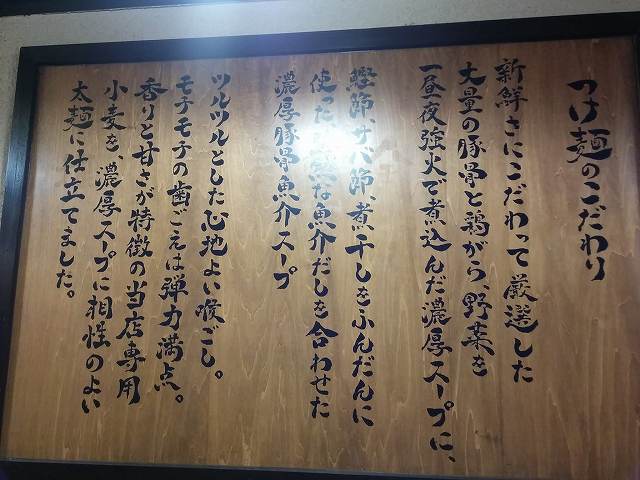 つけ麺のこだわり
新鮮さにこだわって厳選した
大量の豚骨と鶏がら、野菜を
一昼夜強火で煮込んだ濃厚スープに、
鰹節、サバ節、煮干しをふんだんに
使った な魚介だしを合わせた
濃厚豚骨魚介スープ
ツルツルとした心地よい喉ごし。
モチモチの歯ごえは弾力満点。
香りと甘さが特徴の当店専用
小麦を、濃厚スープに相性のよい
太麺に仕立てました。